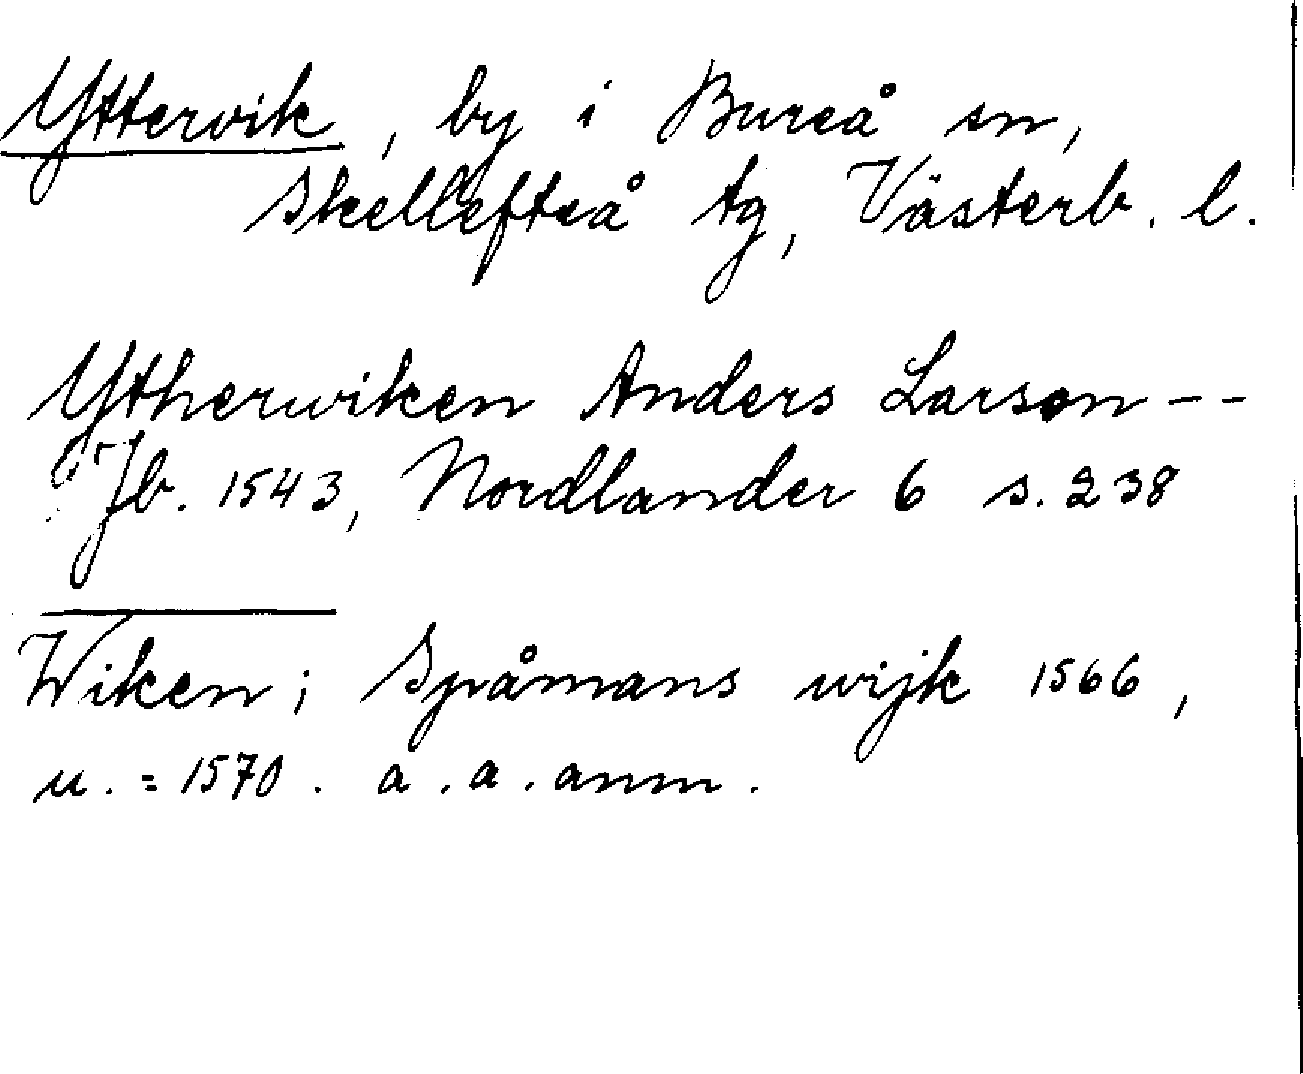 Yttervik, by i Bureå sn,
Skellefteå tg, Västerb. l.
Ytherwiken Anders Larson --
Jb. 1543, Nordlander 6 s. 238
Wiken; Spåmans wijk 1566,
u. = 1570. a. a. anm.